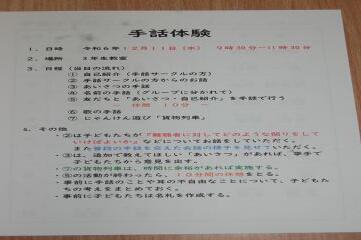 手話体験
1．日時　令和6年12月11日（水）　9時30分－11時30分
2．場所　3年生教室
3．日程（当日の流れ）
① 自己紹介（手話サークルの方）
② 手話サークルの方からのお話
③ あいさつの手話
④ 名前の手話（グループに分かれて）
⑤ 友だちと「あいさつ・自己紹介」を手話で行う
休憩　10分－
⑥ 歌の手話
⑦ じゃんけん遊び「貨物列車」
5．その他
・②は子どもたちが「難聴者に対してどのような関りをして
いけばよいか」などについてお話をしていただく。
また普段の手話を交えた会話の様子を見せていただく。
・③は、追加で教えてほしい「あいさつ」があれば、挙手で
子どもたちから意見を出す。
・⑦の貨物列車は、時間に余裕があれば実施する。
・⑤の活動が終わったら、10分間の休憩をとる。
・事前に手話のことや耳の不自由なことについて、子どもた
ちの考えをまとめておく。
・事前に子どもたちは名札を作成する。